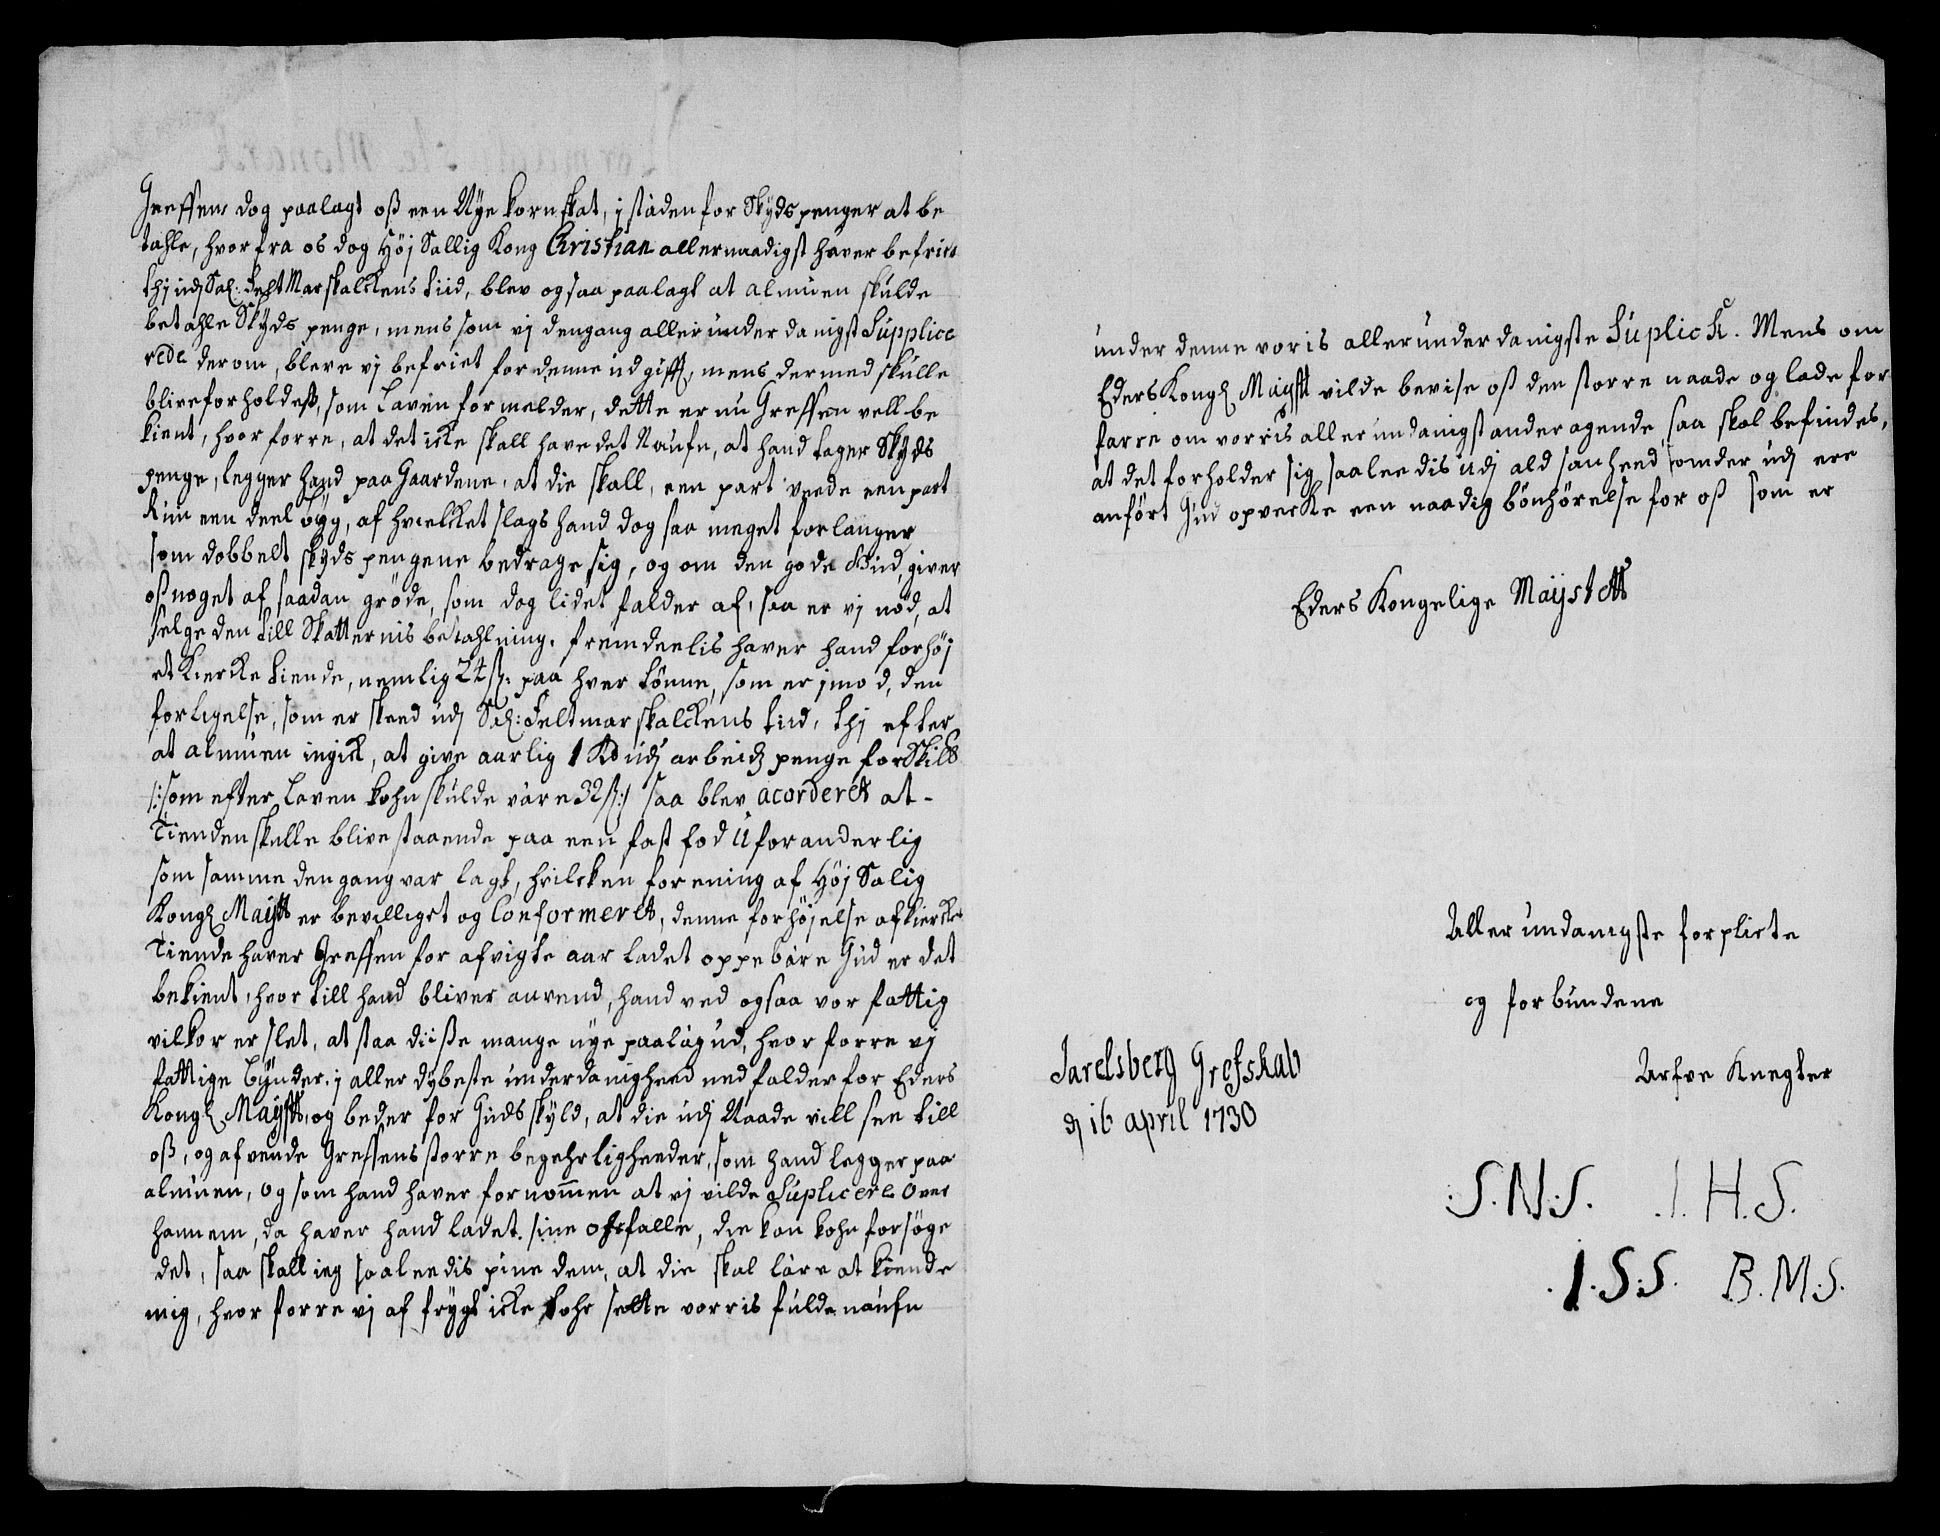 Greffens dog paalagt oß een Nye korn skat, i stæden for Skyds penger at be
tahle, hvorfra os dog Høj Sallig Kong Christian allernaadigst haver befriet
thj udj Sal: Felt Marskalckens tiid, blev ogsaa paalagt at almuen skulde
betahle Skyds penge, mens som vj dengang allerunderdanigst Supplice
rede derom, bleve vj befriet for denne udgifft, mens dermed skulle
blive forholdeß, som Laven formelder, dette er nu Greffen vell be
kient, hvor forre, at det icke skall have det Naufn, at hand tager Skyds
penge, legger hand paa Gaardene, at die skall, een part veede een part
Rüu een deel byg, af hvelcket slags hand dog saa meget forlanger
som dobbelt skyds pengene bedrage sig, og om den gode Gud giver
oß noget af saadan grøde, som dog lidet falder af, saa er vj nød, at
selge den till Skatternis betahlning. fremdeelis haver hand forhøj
et Kiercke tiende, nemlig 24 ß: paa hver tønne, som er jmod, den
forligelse, som er skeed udj Sal: Feltmarskalckens tiid, thj efter
at almuen ingick, at give aarlig 1 Rd udj arbeidz penge for Skild
/: som efter Laven kohn skulde være 32 ß :/ saa blev acorderet at -
Tienden skulle blive staaende paa een fast fod Uforanderlig
som samme den gang var lagt, hvilcken forening af Høj Salig
Kongl Maystt er bevilliget og Conformeret, denne forhøjelse af kiercke
Tiende haver Greffen for afvigte aar ladet oppebære Gud er det
bekient, hvor till hand bliver anvend, hand ved ogsaa vor fattig
vilkor er slet, at staa diiße mange nye paalag ud, hvor forre vj
fattige Bynder, j aller dybeste underdanigheed nedfalder for Eders
Kongl Maystt, og beder for Guds skyld, at die udj Naade vill see till
oß, og afvende Greffens storre begehrligheeder, som hand legger paa
almuen, og som hand haver fornommen at vj vilde Suplicere over
hannem, da haver hand ladet sine ord falle, die kan kohn forsøge
det, saa skall ieg saaleedis pine dem, at die skal lære at kiende
mig, hvor forre vj af frygt icke tohr sette vorris fulde naufn
under denne voris allerunderdanigste Suplick. Mens om
Eders Kongl Maystt vilde bevise oß den storre naade og lade for
farre om vorris allerundanigst anderagende, saa skal befindes,
at det forholder sig saaleedis udj ald sanheed somder udj ere
anført Gud opvecke een naadig bønhørelse for oß som er
Eders Kongelige Maijstett
Allerundanigste forplicte
og forbundene
Jarelsberg Grefskab
d 16 april 1730
Arfve Knegter
:S.N:S. .I.H.S.
.I.S:S. B.M:S.